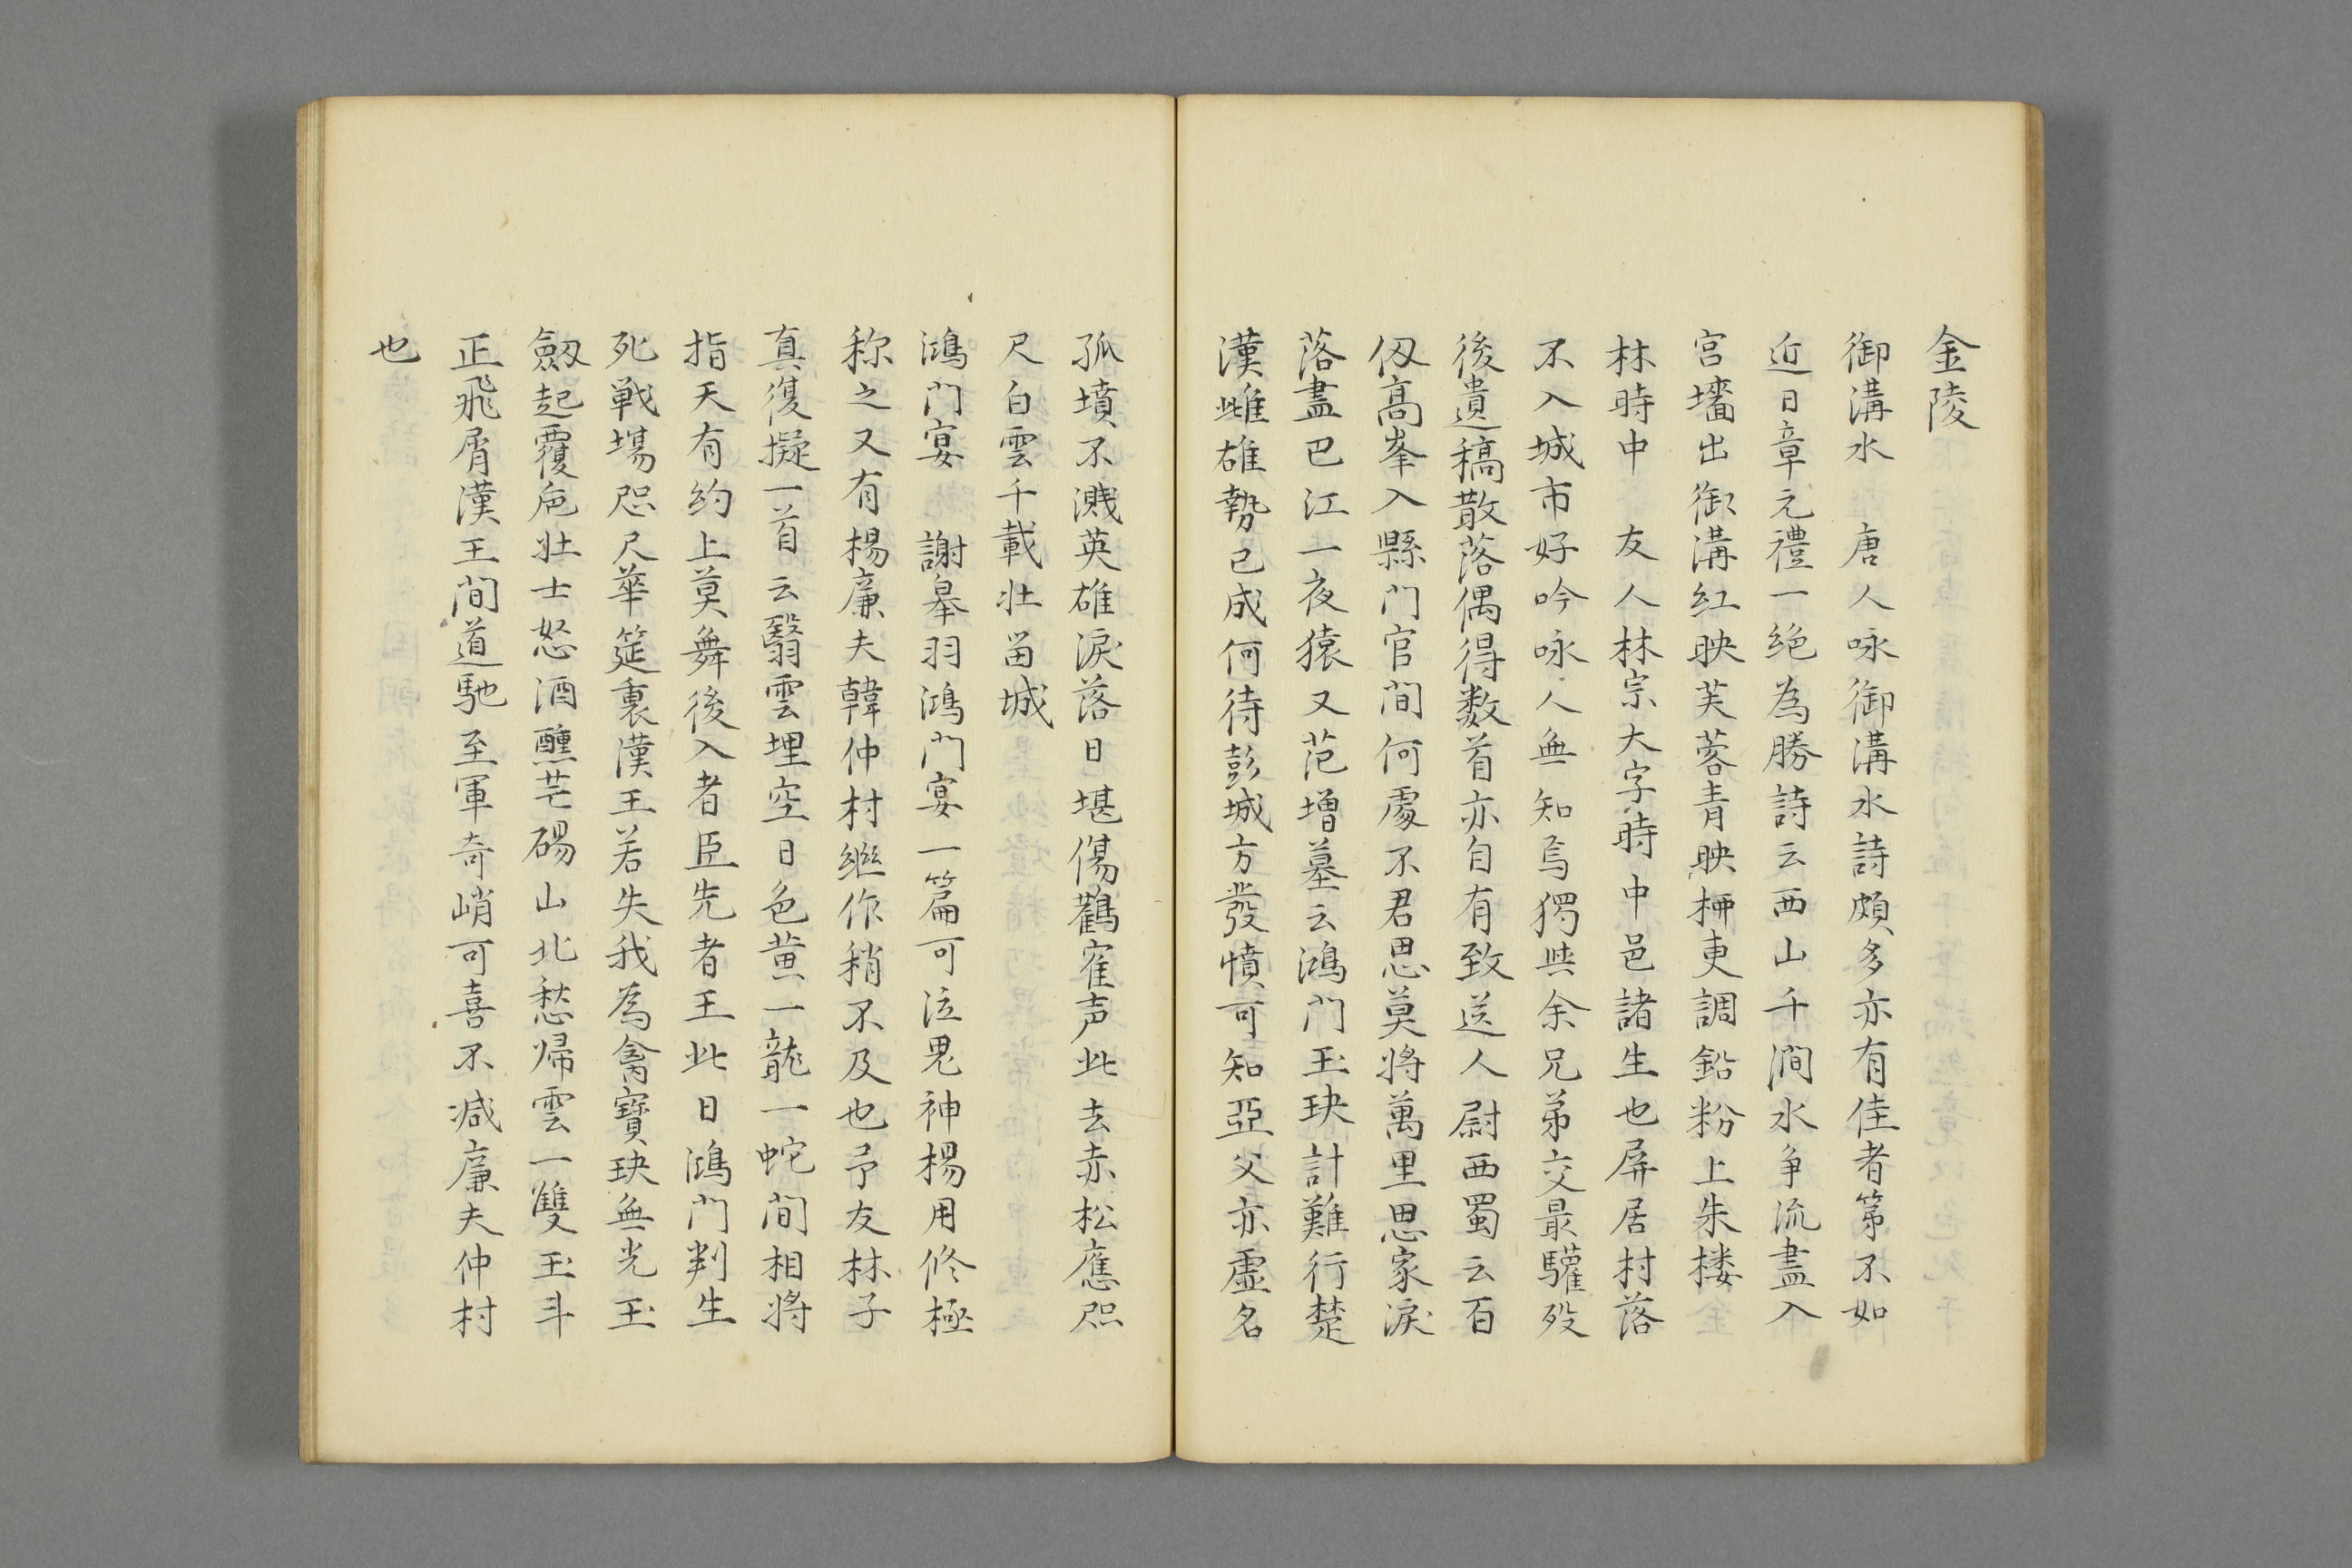 金陵
御溝水　唐人咏御溝水詩頗多亦有佳者第不如
近日章元禮一絶為勝詩云西山千澗水争流盡入
宫墻出御溝紅映芙蓉青映栁更調鉛粉上朱楼
林時中　友人林宗大字時中邑諸生也屏居村落
不入城市好吟咏人無知焉獨與余兄弟交最驩殁
後遺稿散落偶得数首亦自有致送人尉西蜀云百
仭高峯入縣門官間何處不君思莫将萬里思家淚
落盡巴江一夜猿又范增墓云鴻門玉玦計難行楚
漢雌雄勢已成何待彭城方發憤可知亞父亦虚名
孤墳不濺英雄淚落日堪傷鸛寉声此去赤松應咫
尺白雲千載壮留城
鴻門宴　謝皋羽鴻門宴一篇可泣鬼神楊用修極
称之又有楊廉夫韓仲村継作稍不及也予友林子
真復擬一首云翳雲埋空日色黄一龍一蛇間相将
指天有約上莫舞後入者臣先者王此日鴻門判生
死戦場咫尺華筵裏漢王若失我為禽寳玦無光玉
劔起覆巵壮士怒酒醺芒碭山北愁帰雲一雙玉斗
正飛屑漢王間道馳至軍奇峭可喜不减廉夫仲村
也